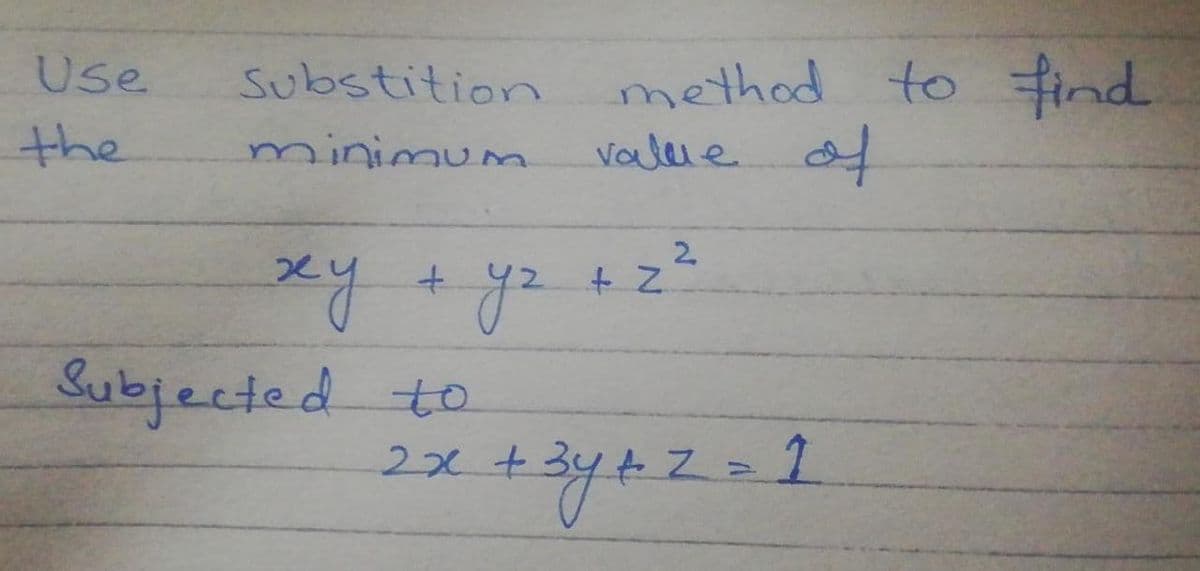 Use substition method to find
the minimum value of
xy + yz + z²
Subjected to
2x + 3y + z = 1